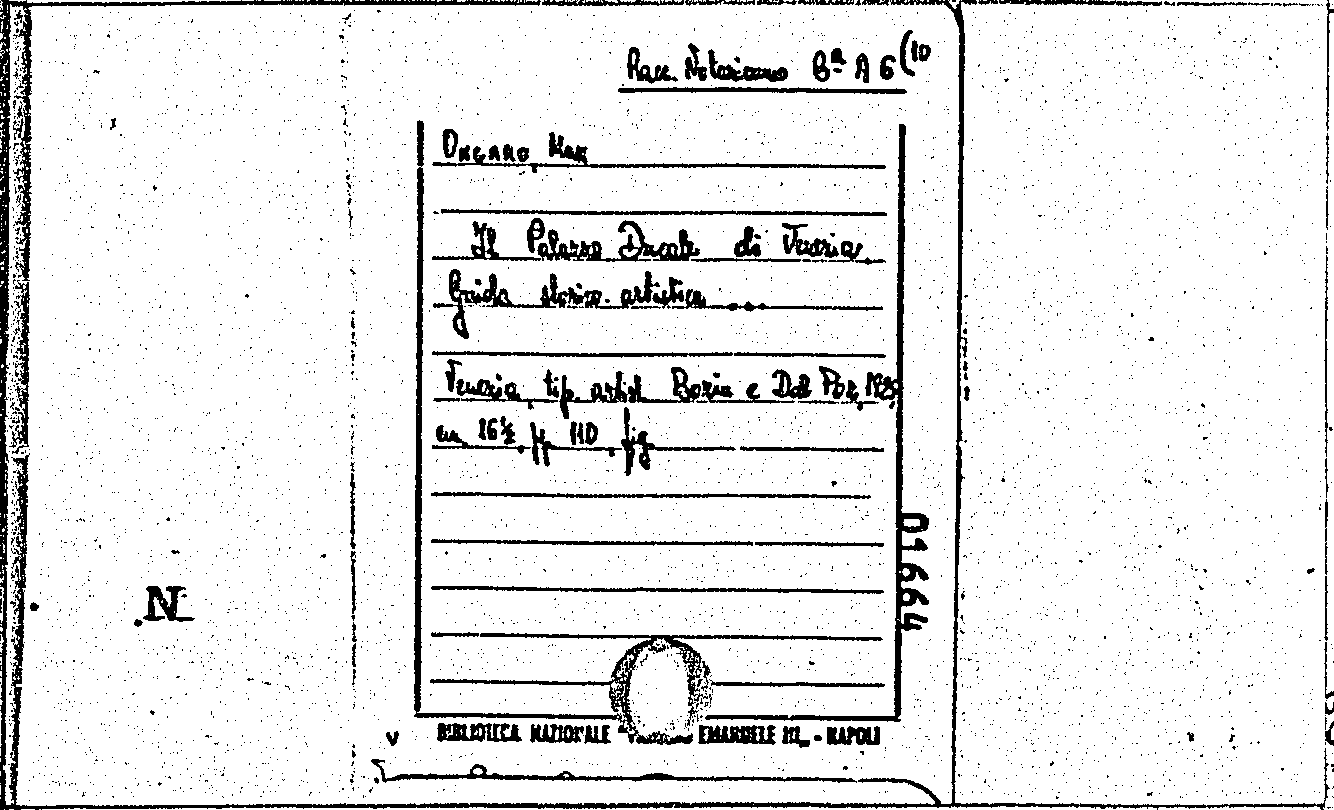 Racc. Notariano Bª A 6 (10
ONGARO, MAX
Il Palazzo Ducale di Venezia.
Guida storico-artistica ...
Venezia, tip. artist. Bozin e Dal Poz,
cm. 16½, pp. 110, fig
01664
N
BIBLIOTECA NAZIONALE " EMANUELE III„ - NAPOLI
V